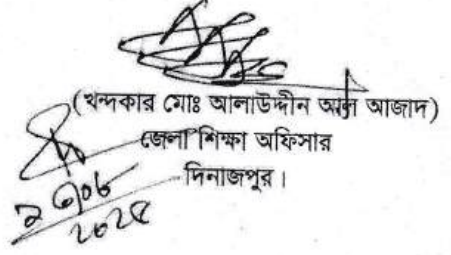 (খন্দকার মোঃ আলাউদ্দীন আল আজাদ)
জেলা শিক্ষা অফিসার
দিনাজপুর।
২০২৫